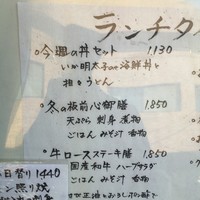 ランチタ
○今週の丼セット 1,130
いか明太子の海鮮丼と
担々うどん
○冬の板前心御膳 1,850
天ぷら 刺身 煮物
ごはん みそ汁 香物
○牛ロースステーキ膳 1,850
国産和牛 ハーフ
ごはん みそ汁 香物
日替り 1440
ン照り焼